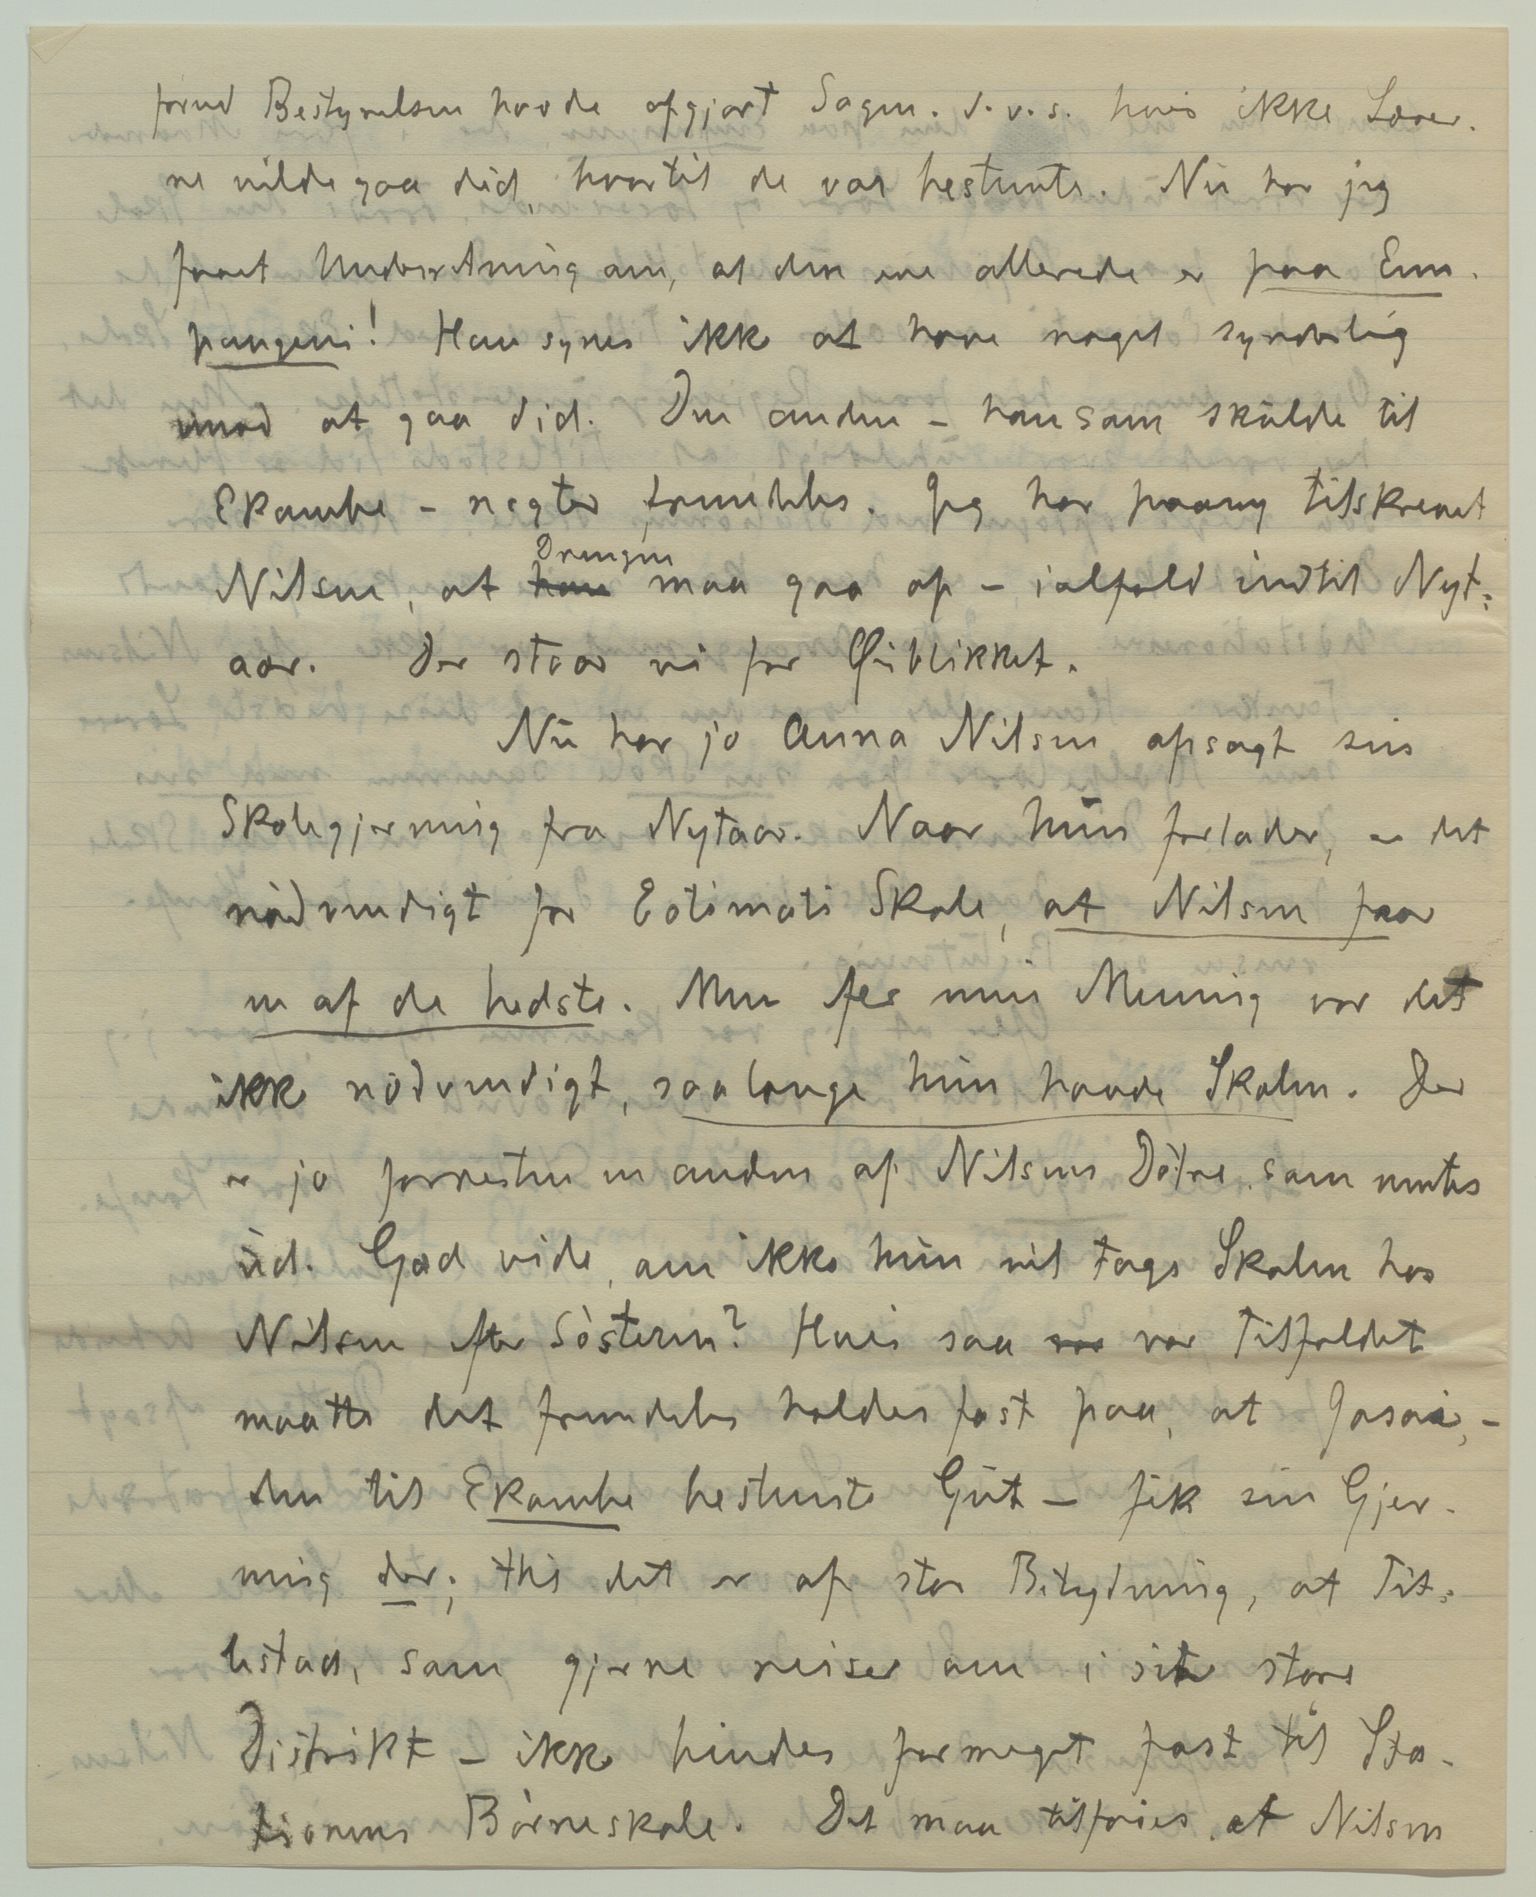 forend Bestyrelsen havde afgjort Sagen. d.v.s. hvis ikke Lærer-
ne vilde gaa did, hvortil de var bestemte. Nu har jeg
faaet Underretning om, at den ene allerede er paa Em-
pangeni! Han synes ikke at have noget synderlig
imod at gaa did. Den anden – han som skulde til
Ekombe – negter fremdeles. Jeg har paany tilskrevet
Nilsen, at Drengen maa gaa op – ialfald indtil Nyt-
aar. Der staar vi for Øiblikket.
Nu har jo Anna Nilsen opsagt sin
Skolegjerning fra Nytaar. Naar hun forlader, er det
nødvendigt for Eotimati Skole, at Nilsen faar
en af de bedste. Men før min Mening var det
ikke nødvendigt, saalænge hun havde Skolen. Der
er jo forresten en anden af Nilsens Døtre, som ventes
ud. Gud vide, om ikke hun vil tage Skolen hos
Nilsen efter Søsteren? Hvis saa var Tilfældet
maatte det fremdeles holdes fast paa, at Josaia, –
den til Ekombe bestemte Gut – fik sin Gjer-
ning der; thi det er af stor Betydning, at Tit-
lestad, som gjerne reiser om i sit store
Distrikt – ikke bindes formeget fast til Sta-
tionens Børneskole. Det maa tilføies, at Nilsen